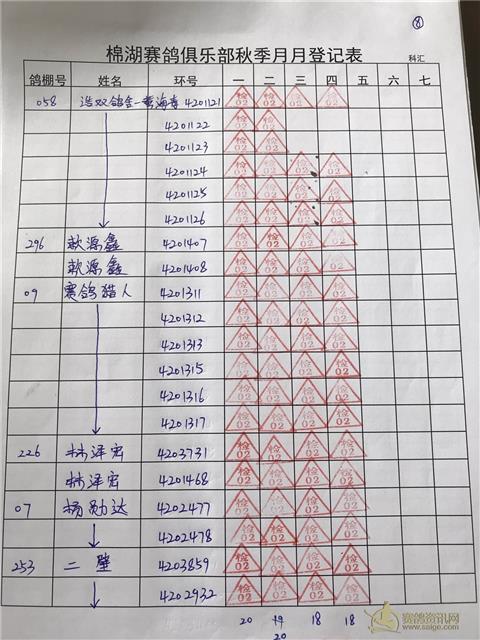 ⑧
棉湖赛鸽俱乐部秋季月月登记表
科汇
鸽棚号 姓名 环号 一 二 三 四 五 六 七
058 浩双鸽舍-黄海春 4201121 检02 检02 检02 检02
4201122 检02 检02
4201123 检02 检02
4201124 检02 检02 检02 检02
4201125 检02 检02 检02 检02
4201126 检02 检02 检02 检02
296 歆源鑫 4201407 检02 检02 检02 检02
歆源鑫 4201408 检02 检02 检02 检02
09 赛鸽猎人 4201311 检02 检02 检02 检02
4201312 检02 检02 检02 检02
4201313 检02 检02 检02 检02
4201315 检02 检02 检02 检02
4201316 检02 检02 检02 检02
4201317 检02 检02 检02 检02
226 林泽宏 4203731 检02 检02 检02 检02
林泽宏 4201468 检02 检02 检02 检02
07 杨勋达 4202477 检02 检02 检02 检02
4202478 检02 检02 检02 检02
253 二壁 4203859 检02 检02 检02 检02
4202932 检02 检02 检02 检02
20 19 18 18
20
赛鸽资讯网
www.saige.com